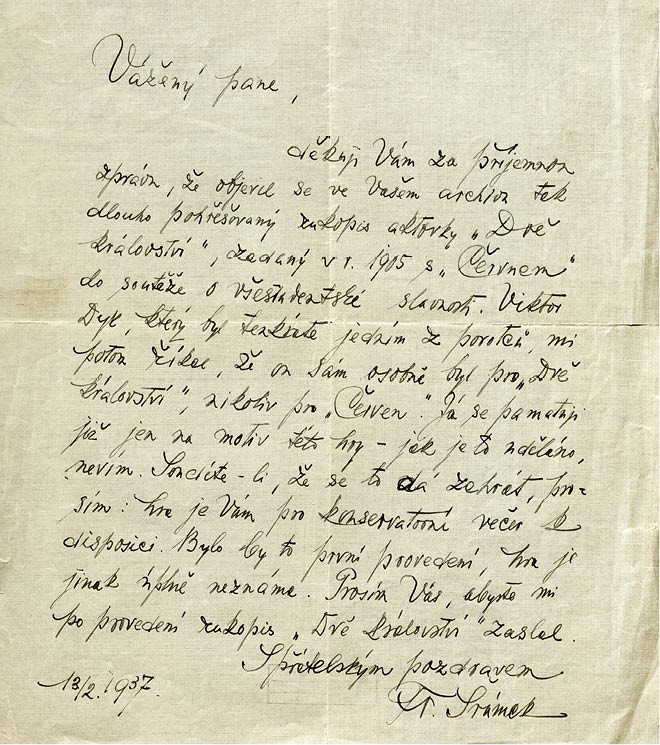 Vážený pane,
děkuji Vám za příjemnou
zprávu, že objevil se ve Vašem archivu tak
dlouho pohřešovaný rukopis aktovky „Dvě
království", zadaný v r. 1905 s „Červnem"
do soutěže o všestudentské slavnosti. Viktor
Dyk, který byl tenkráte jedním z porotců, mi
potom říkal, že on sám osobně byl pro „Dvě
království", nikoliv pro „Červen". Já se pamatuji
již jen na motiv této hry – jak je to uděláno,
nevím. Soudíte-li, že se to dá zahrát, pro=
sím: hra je Vám pro konservatorní večer k
disposici. Bylo by to první provedení, hra je
jinak úplně neznáma. Prosím Vás, abyste mi
po provedení rukopis „Dvě království" zaslal.
S přátelským pozdravem
13/2. 1937. Fr. Šrámek